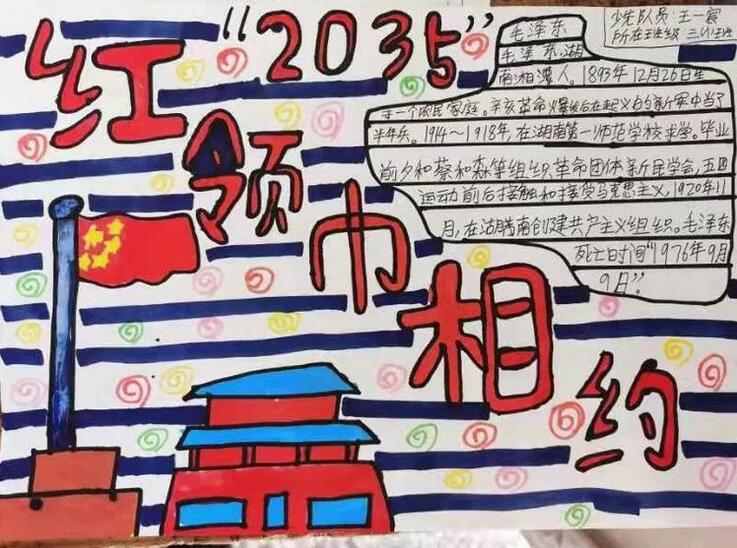 红领巾相约“2035”
少先队员:王一
所在班级 三(1)班
毛泽东
毛泽东,湖
南湘潭人。1893年12月26日生
于一个农民家庭。辛亥革命爆发后在起义的新军中当了
半年兵。1914～1918年,在湖南第一师范学校求学。毕业
前夕和蔡和森等组织革命团体新民学会,五四
运动前后接触和接受马克思主义,1920年11
月,在湖南创建共产主义组织。毛泽东
死亡时间“1976年9月
9日”。